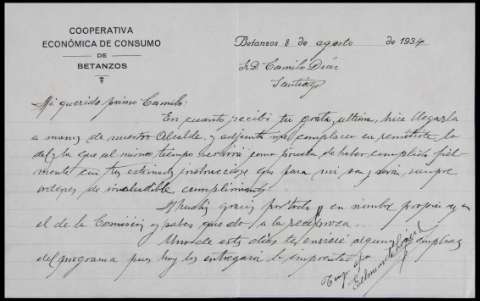 COOPERATIVA
ECONÓMICA DE CONSUMO
DE
BETANZOS
Betanzos 8 de agosto de 1934
Sr. D. Camilo Díaz
Santiago
Mi querido primo Camilo:
En cuanto recibí tu grata última, hice llegarla
a manos de nuestro Alcalde, y adjunto me complazco en remitirte la
del que al mismo tiempo servirá como prueba de haber cumplido fiel
mente con tus instrucciones que para mi son y serán siempre
ordenes de ineludible cumplimiento.
Muchas gracias por todo, en nombre propio y en
el de la Comisión y sabes que do a la recíproca.
Uno de estos días te enviaré algunos ejemplares
del programa pues hoy los entregará la imprenta.
Tuyo